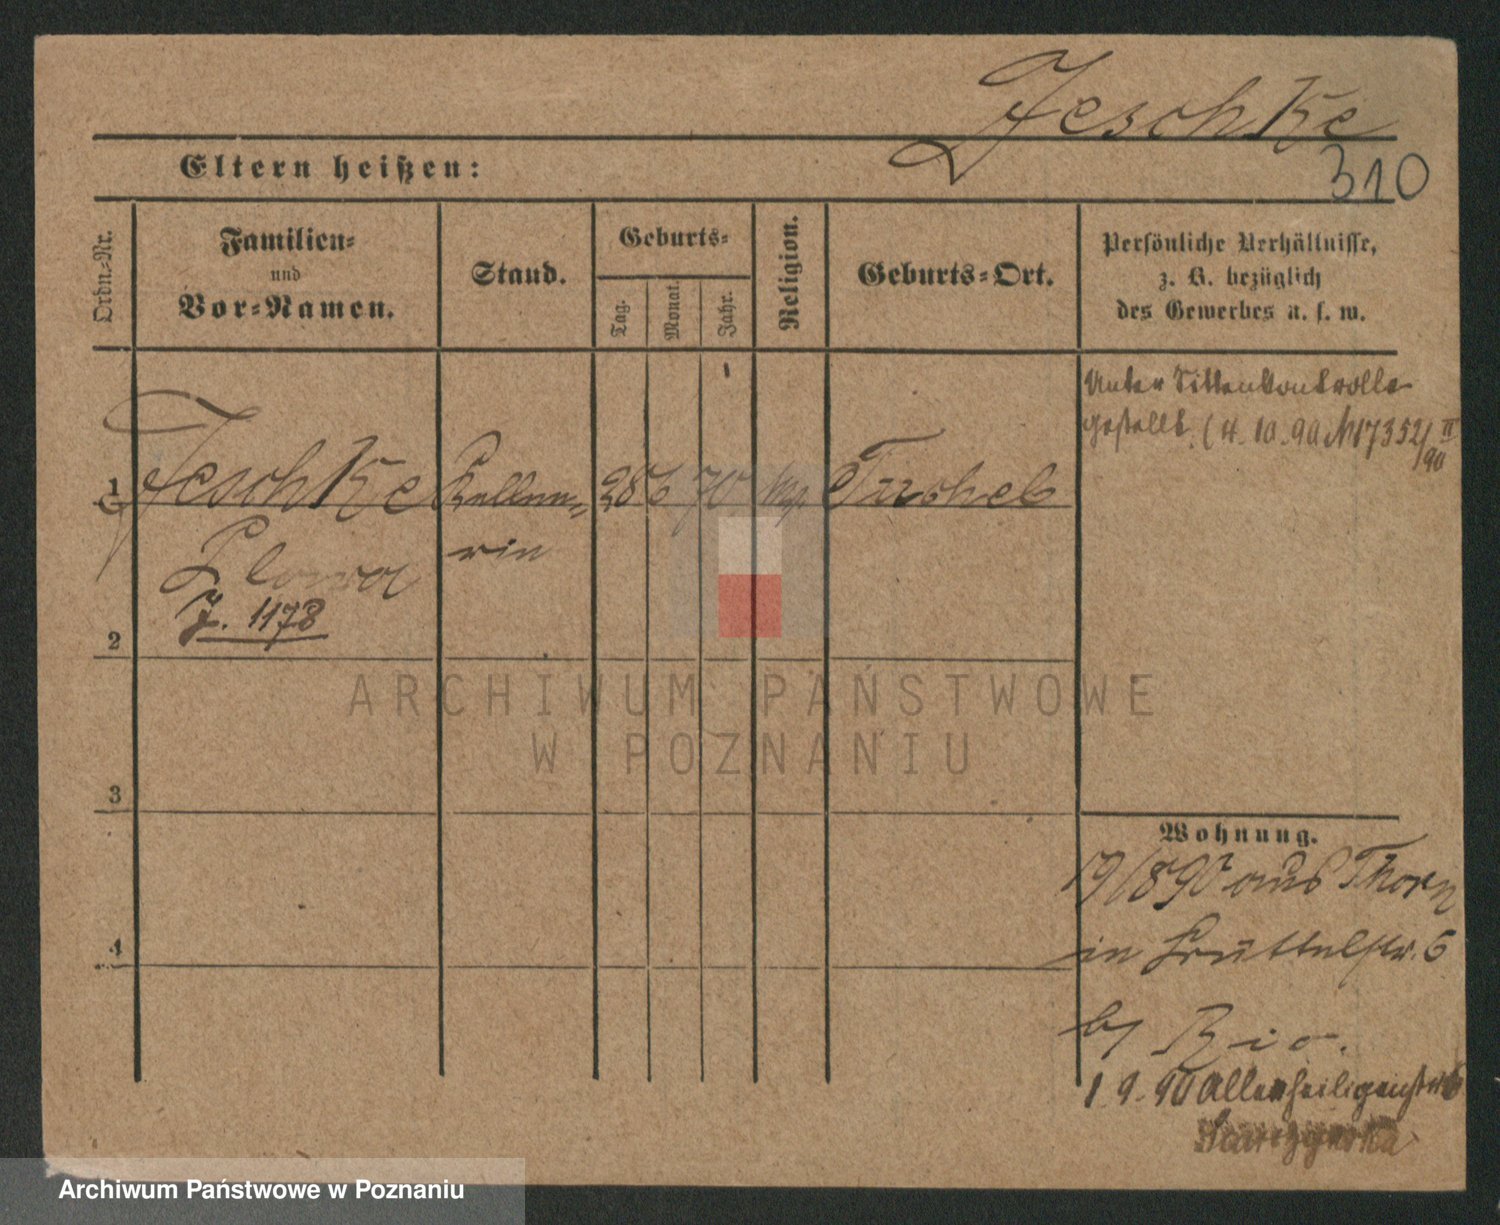 Jeschke
310
Eltern heißen:
Ordn.-Nr.
Familien-
und
Vor-Namen.
Stand.
Geburts-
Tag.
Monat.
Jahr.
Religion.
Geburts-Ort.
Persönliche Verhältnisse,
z. B. bezüglich
des Gewerbes u. s. w.
Unter Sittenkontrolle
gestellt. (4. 10. 90 № 17352/90 II
1 Jeschke Kellne- 28 6 70 Tuchel
rin
J. 1178
2
3
4
Wohnung.
19/8 90 aus Thorn
in 6
b/
1. 9. 90 Allerheiligenstr 6
ARCHIWUM PAŃSTWOWE
W POZNANIU
Archiwum Państwowe w Poznaniu